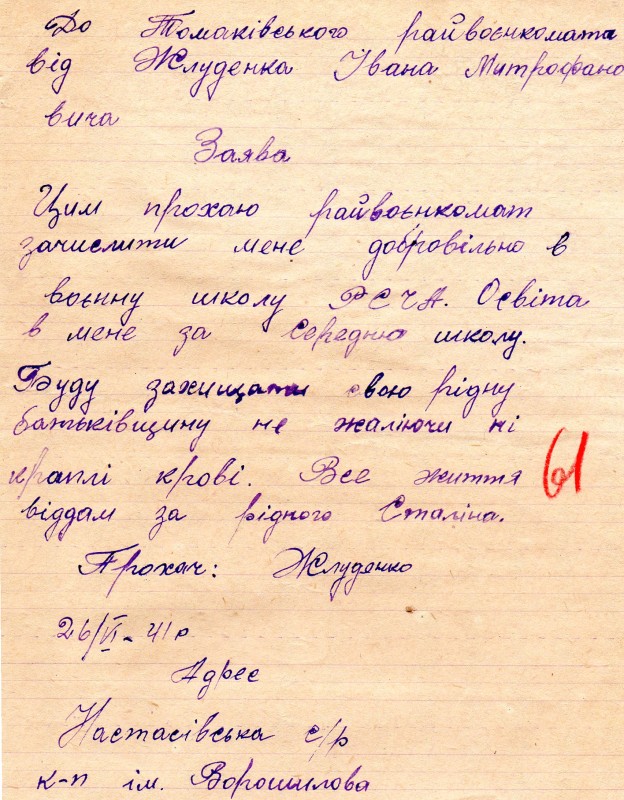 До Томаківського райвоєнкомата
від Жлуденка Івана Митрофано
вича
Заява
Цим прохаю райвоєнкомат
зачислити мене добровільно в
воєнну школу РСЧА. Освіта
в мене за середню школу.
Буду захищати свою рідну
батьківщину не жаліючи ні
краплі крові. Все життя
віддам за рідного Сталіна.
61
Прохач: Жлуденко
26/VI - 41 р.
Адрес
Настасівська с/р
к-п ім. Ворошилова